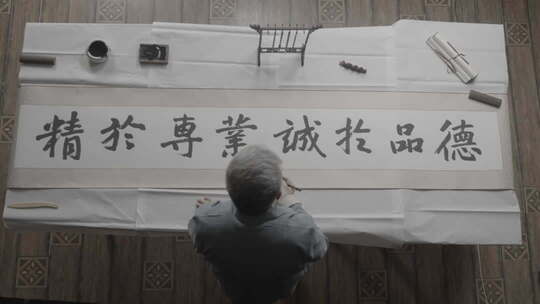 精於專業誠於品德